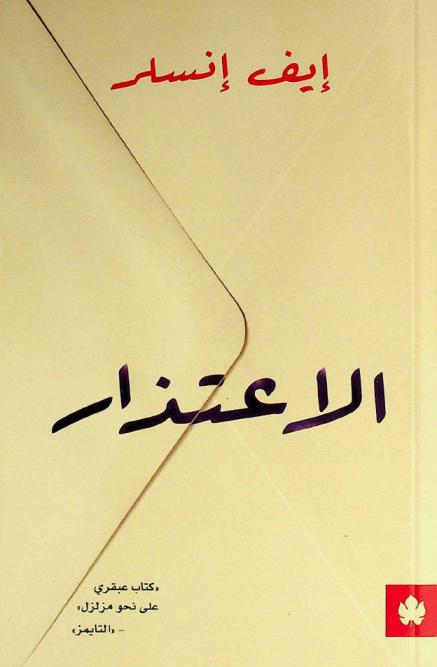 إيف إنسلر
الاعتذار
«كتاب عبقري
على نحو مزلزل»
– «التايمز»